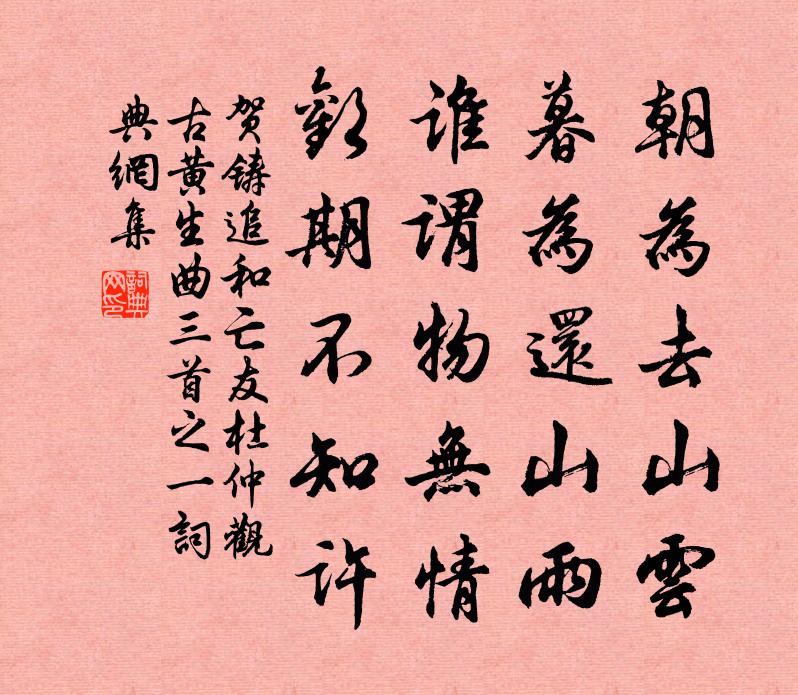 朝為去山雲
暮為還山雨
誰謂物無情
歡期不知許
贺鑄追和亡友杜仲觀
古黄生曲三首之一詞
典網集
詞典
网印